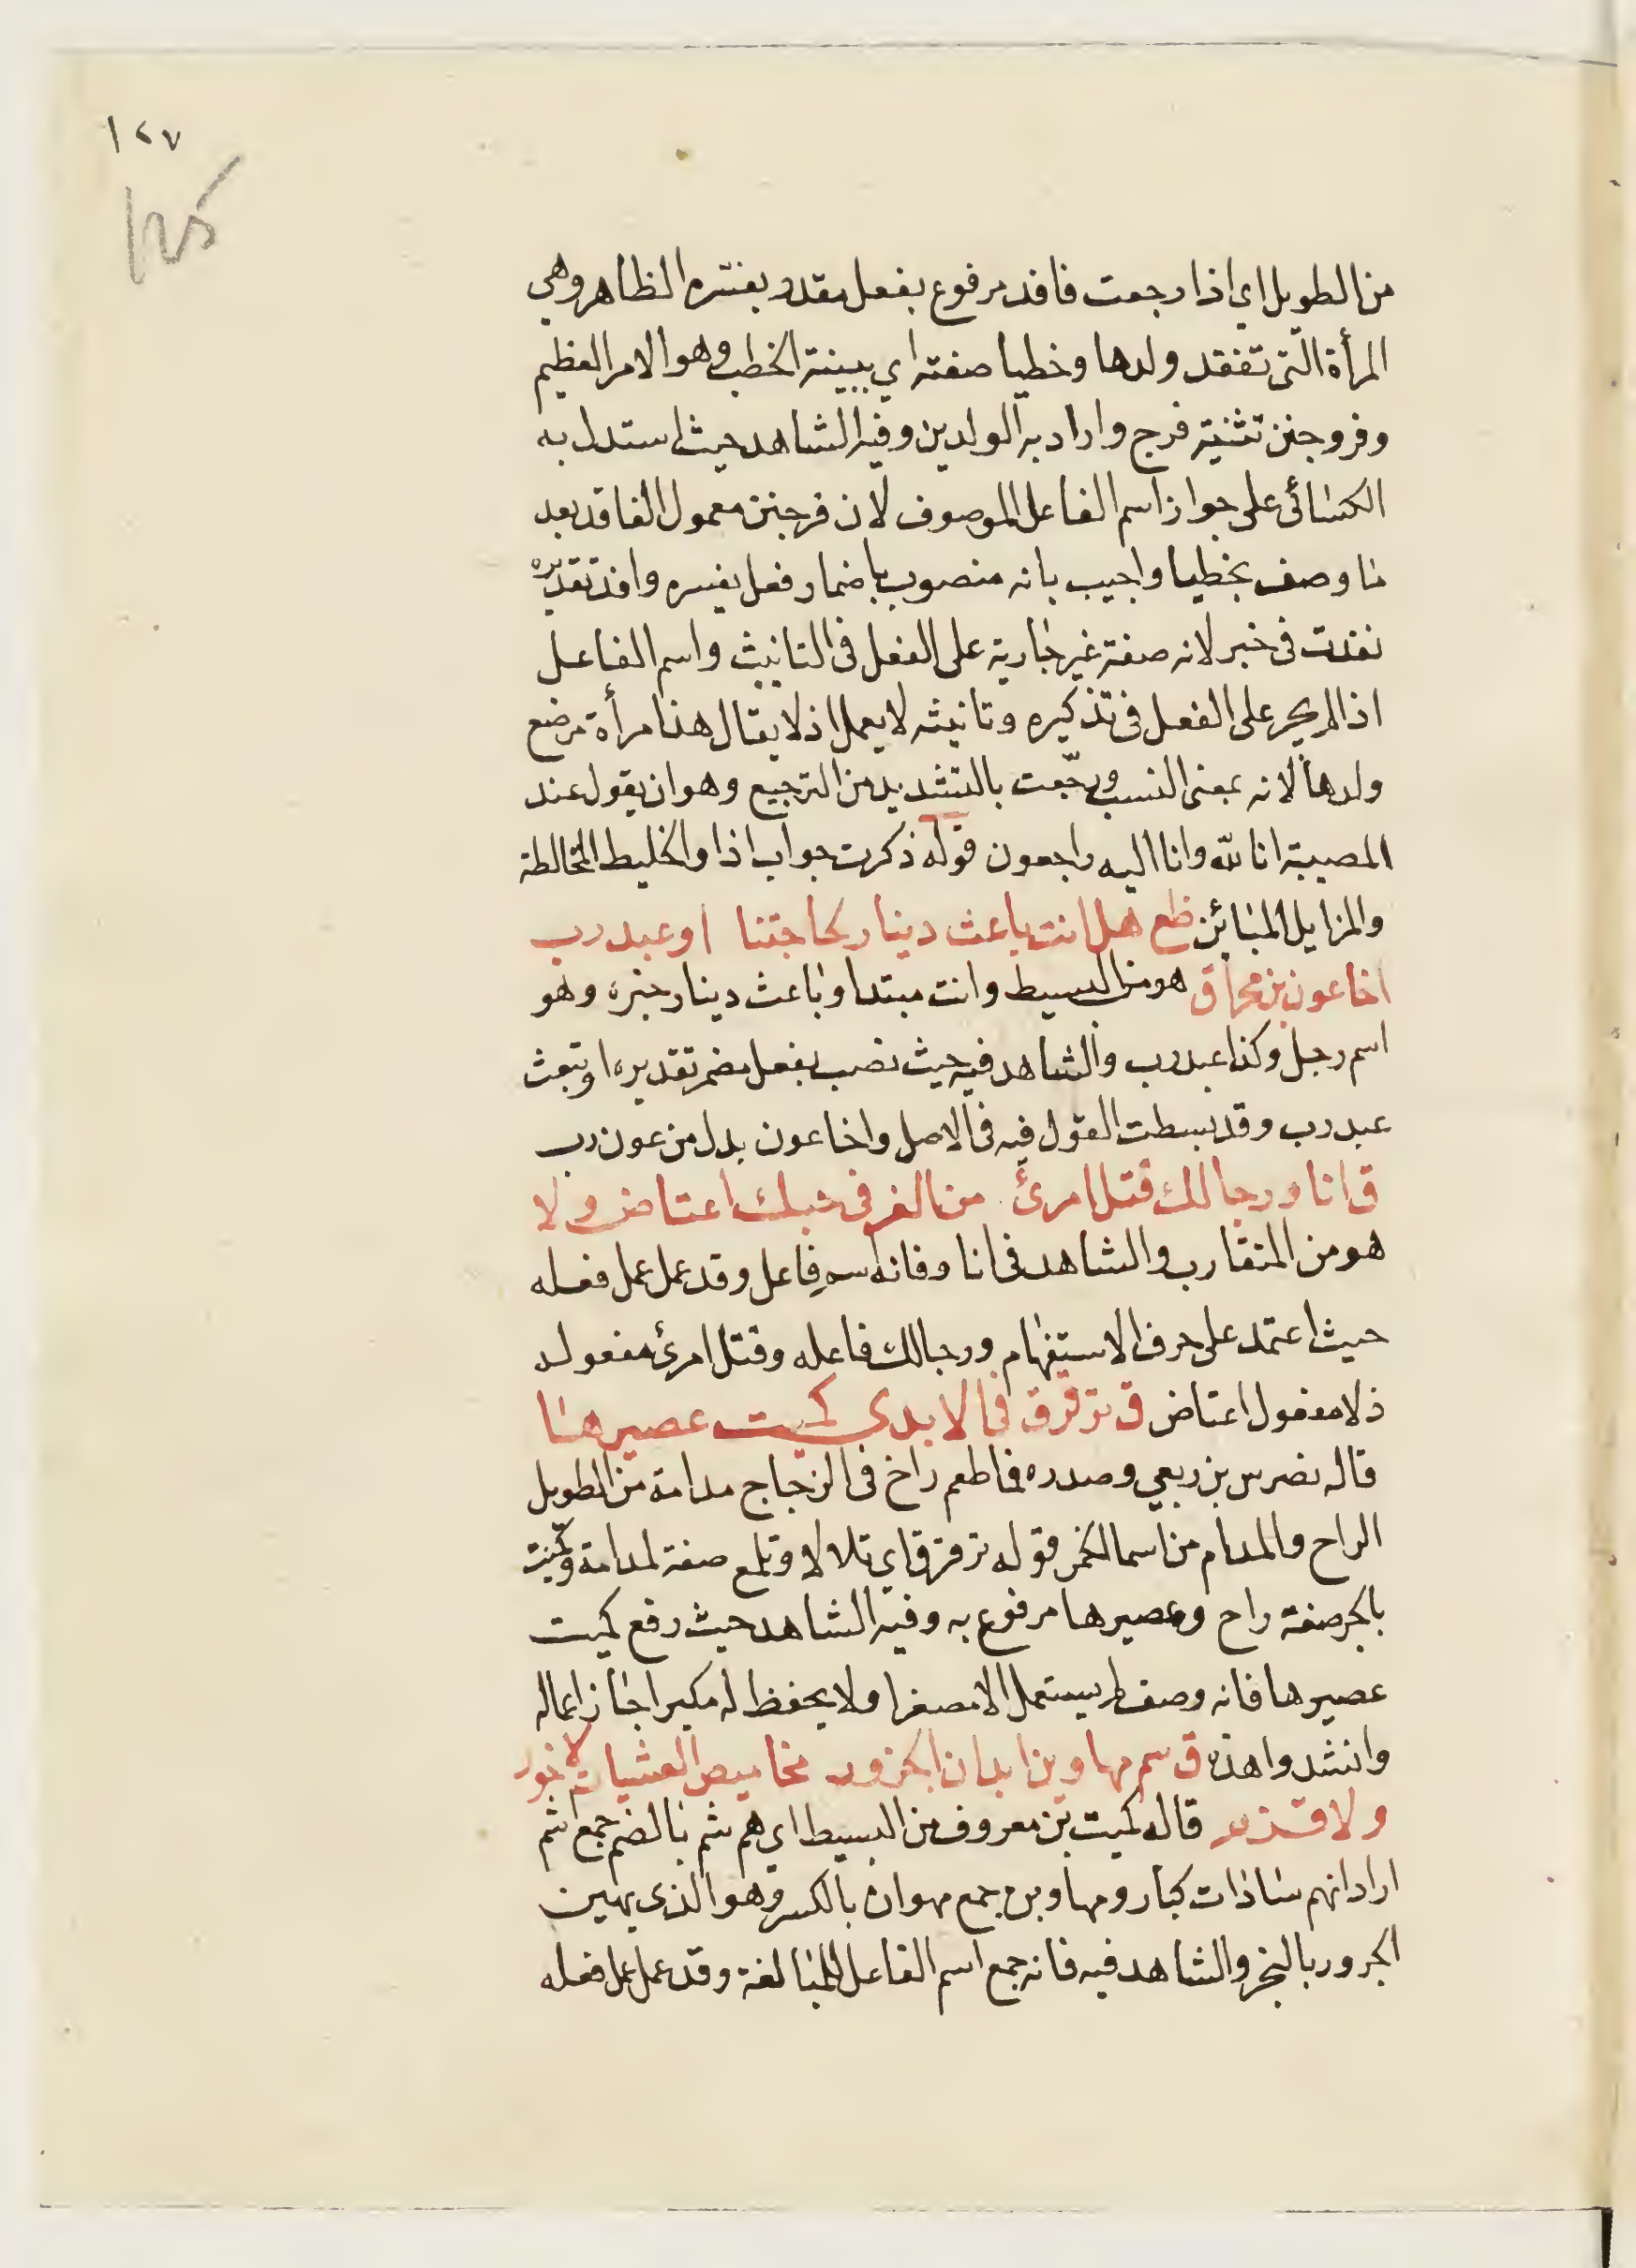 ١٢٧
من الطويل اي اذا رجعت فاقد مرفوع بفعل مقدر يفسره الظاهر وهي
المرأة التى تفقد ولدها وخطبا صفته اي بينة الخطب وهو الامر العظيم
وفروجنن تثنية فرج واراد به الولدين وفيه الشاهد حيث استدل به
الكسائى على جواز اسم الفاعل الموصوف لان فرجنن معمول الفاقد بعد
ما وصف بخطبا واجيب بانه منصوب باضمار فعل يفسره وافد تقديره
نقدت فى خبر لانه صفة غير جارية على الفعل فى التانيث واسم الفاعل
اذا لم يجر على الفعل فى تذكيره وتانيثه لا يعمل اذ لا يقال هذا مرأة مرضع
ولدها لانه بمعنى النسب ورجّعت بالتشديد من الترجيع وهو ان يقول عند
المصيبة انا لله وانا اليه راجعون قوله ذكرت جواب اذا والخليط المخالطة
والمزايل المبائن ظع هل انت باعث دينار لحاجتنا او عبد رب
اخا عون بن محراق هو من البسيط وانت مبتدا وباعث دينار خبره وهو
اسم رجل وكذا عبد رب والشاهد فيه حيث نصب بفعل مضمر تقديره او تبعث
عبد رب وقد بسطت القول فيه فى الاصل واخا عون بدل من عون رب
ق اناو رجالك قتل امرئ من الغر فى حبلك اعتاض ولا
هو من المتقارب والشاهد فى اناو فانه اسم فاعل وقد عمل عمل فعله
حيث اعتمد على حرف الاستفهام ورجالك فاعله وقتل امرئ مفعوله
ذلا مفعول اعتاض ق ترقرق فى الايدى كميت عصيرها
قاله نضرس بن ربعي وصدره فما طعم راخ فى الزجاج مدامة من الطويل
الراح والمدام من اسما الخمر قوله ترقرق اي تلالا وتلمع صفة لمدامة وكميت
بالجر صفة راح وعصيرها مرفوع به وفيه الشاهد حيث رفع كميت
عصيرها فانه وصف لم يستعمل الا مصغرا ولا يحفظ له مكبرا جاز اعماله
وانشدوا هذه ق سم مهاوين ابدان الجزور مخاميص العشيات لا خور
ولا قزم قاله كميت بن معروف من البسيط اي هم شم بالضم جمع اشم
اراد انهم سادات كبار ومهاوين جمع مهوان بالكسر وهو الذى يهين
الجزور بالنحر والشاهد فيه فانه جمع اسم الفاعل للمبالغة وقد عمل عمل فعله